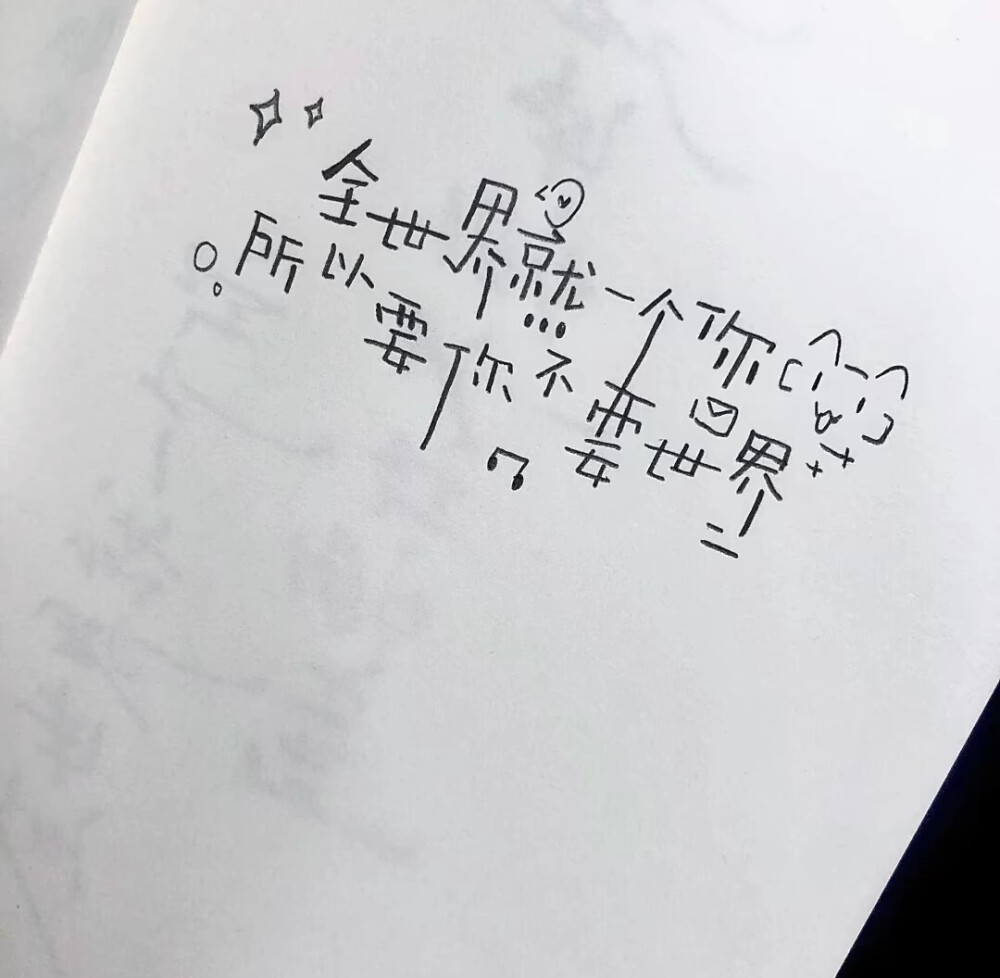 全世界就一个你
所以要你不要世界